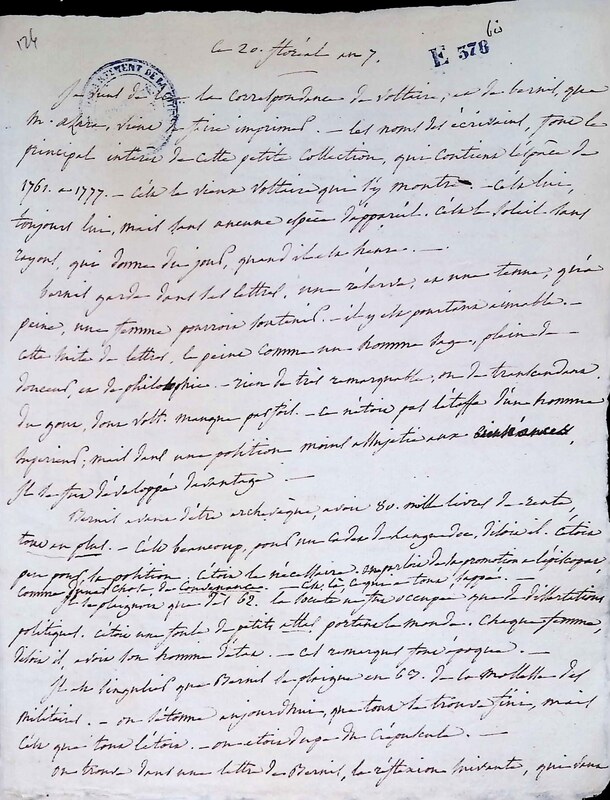 124
bis
E 378
le 20. floréal an 7.
Je viens de lire la correspondance de voltaire, et de bernis, que
m. vient de faire imprimer. – les noms des écrivains, font le
principal intérêt de cette petite collection, qui contient l'espace de
1761. a 1777. – c'est le vieux voltaire qui s'y montre – c'est lui,
toujours lui, mais sans aucune espèce d'appareil. c'est le soleil sans
rayons, qui donne du jour, quand il a la heure. –
bernis garde dans ses lettres, une réserve, et une tenue, qu'à
peine, une femme pourroit soutenir. – il y est pourtant aimable. –
cette suite de lettres, le peint comme un homme sage, plein de
douceur, et de philosophie. – rien de très remarquable, ou de transcendant
du goût, dont volt. manque parfois. – ce n'étoit pas l'étoffe d'un homme
supérieur; mais dans une position moins assujettie aux bienséances,
il se fut développé davantage. –
Bernis avant d'être archevêque, avoit 80. mille livres de rente,
tout au plus. – c'est beaucoup, pour un cadet de languedoc, disoit il. c'étoit
peu pour la position. c'étoit le nécessaire. il parloit de sa promotion a l'épiscopat
comme d'une chose de convenance. – c'est là ce qui a tout sappé. –
il se plaignoit que dès 62. la société ne fut occupée que de dissertations
politiques. c'étoit une foule de petits atlas portant le monde. chaque femme,
disoit il, avoit son homme d'état. – cet remarque font époque. –
il est singulier que Bernis se plaigne en 63. de la mollesse des
militaires. – on s'étonne aujourdhui, que tout se trouve fini, mais
c'est que tout l'étoit. – on étoit dupe du crépuscule. –
on trouve dans une lettre de Bernis, la réflexion suivante, qui dans